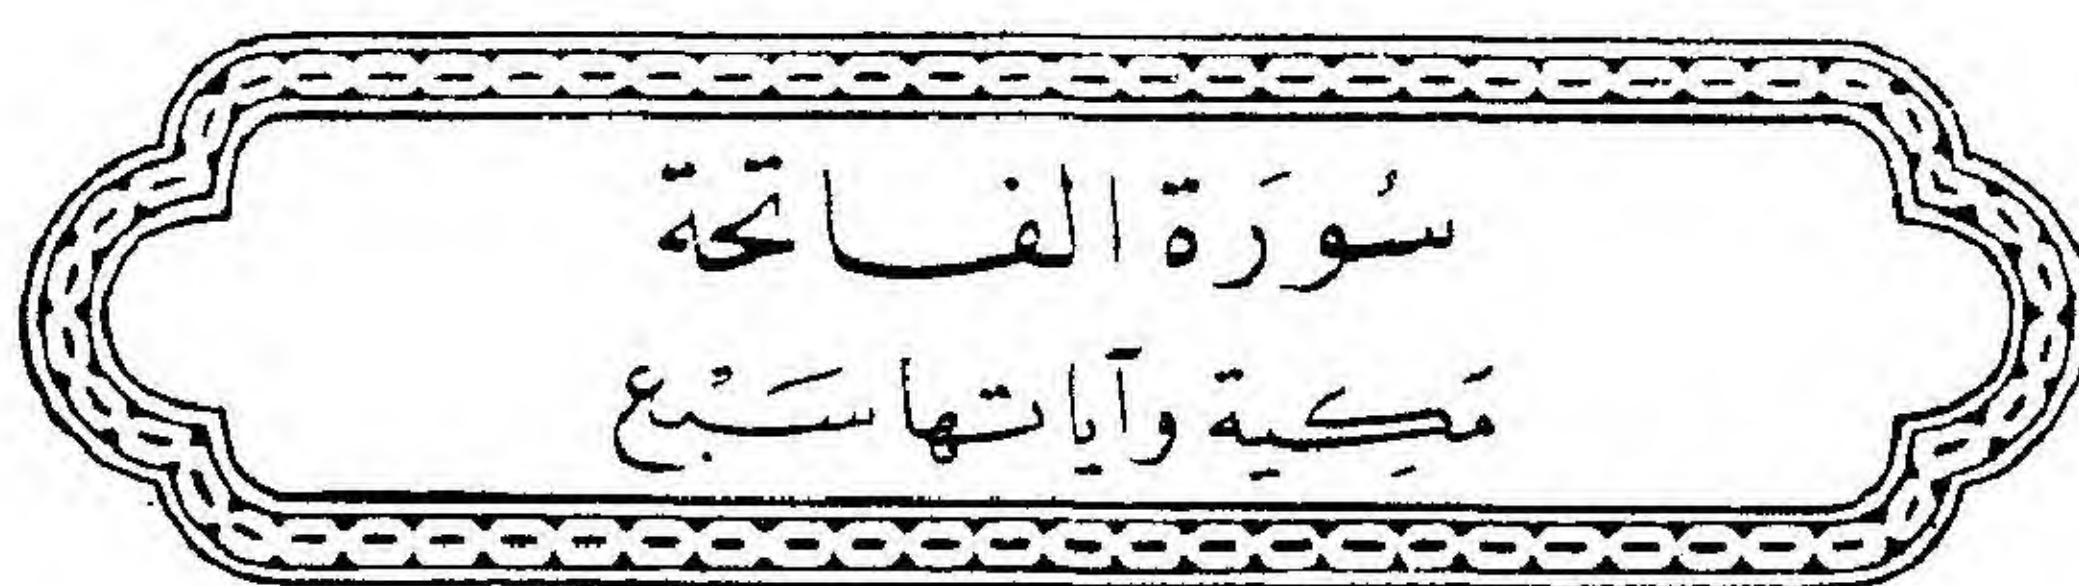 سُورَة الفاتحة
مَكِية وآياتها سَبْع